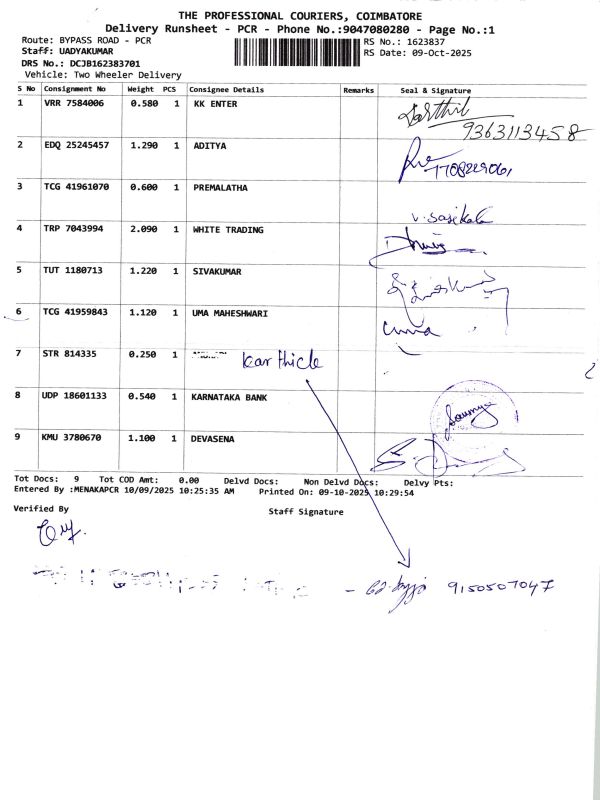 THE PROFESSIONAL COURIERS, COIMBATORE
Delivery Runsheet - PCR - Phone No.:9047080280 - Page No.:1
Route: BYPASS ROAD - PCR
RS No.: 1623837
Staff: UADYAKUMAR
RS Date: 09-Oct-2025
DRS No.: DCJB162383701
Vehicle: Two Wheeler Delivery
S No Consignment No Weight PCS Consignee Details Remarks Seal & Signature
1 VRR 7584006 0.580 1 KK ENTER
9363113458
2 EDQ 25245457 1.290 1 ADITYA
7708229061
3 TCG 41961070 0.600 1 PREMALATHA
V. Sasikala
4 TRP 7043994 2.090 1 WHITE TRADING
5 TUT 1180713 1.220 1 SIVAKUMAR
6 TCG 41959843 1.120 1 UMA MAHESHWARI
uma
7 STR 814335 0.250 1 Karthick
8 UDP 18601133 0.540 1 KARNATAKA BANK
Soumya
9 KMU 3780670 1.100 1 DEVASENA
Tot Docs: 9 Tot COD Amt: 0.00 Delvd Docs: Non Delvd Docs: Delvy Pts:
Entered By :MENAKAPCR 10/09/2025 10:25:35 AM Printed On: 09-10-2025 10:29:54
Verified By
Staff Signature
9150507047